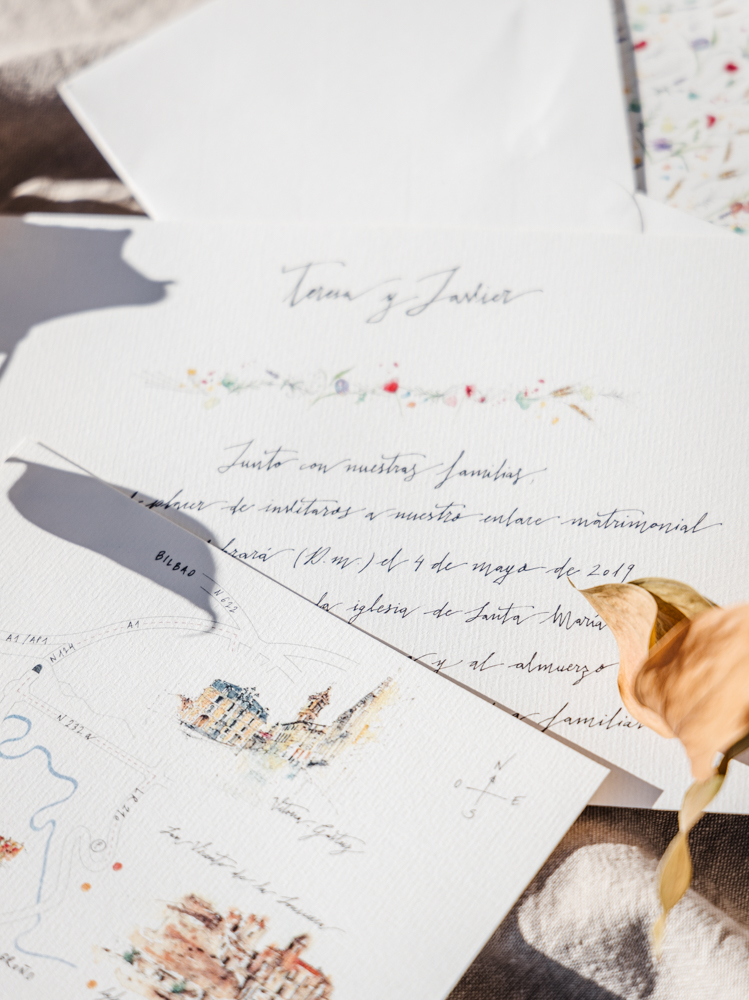 Teresa y Javier
Junto con nuestras familias,
placer de invitaros a nuestro enlace matrimonial
brará (D.m.) el 4 de mayo de 2019
la iglesia de Santa María
y al almuerzo
familiar
BILBAO
N 622
A1
A1/AP1
N 124
N 232a
N
O E
S
Vitoria-Gasteiz